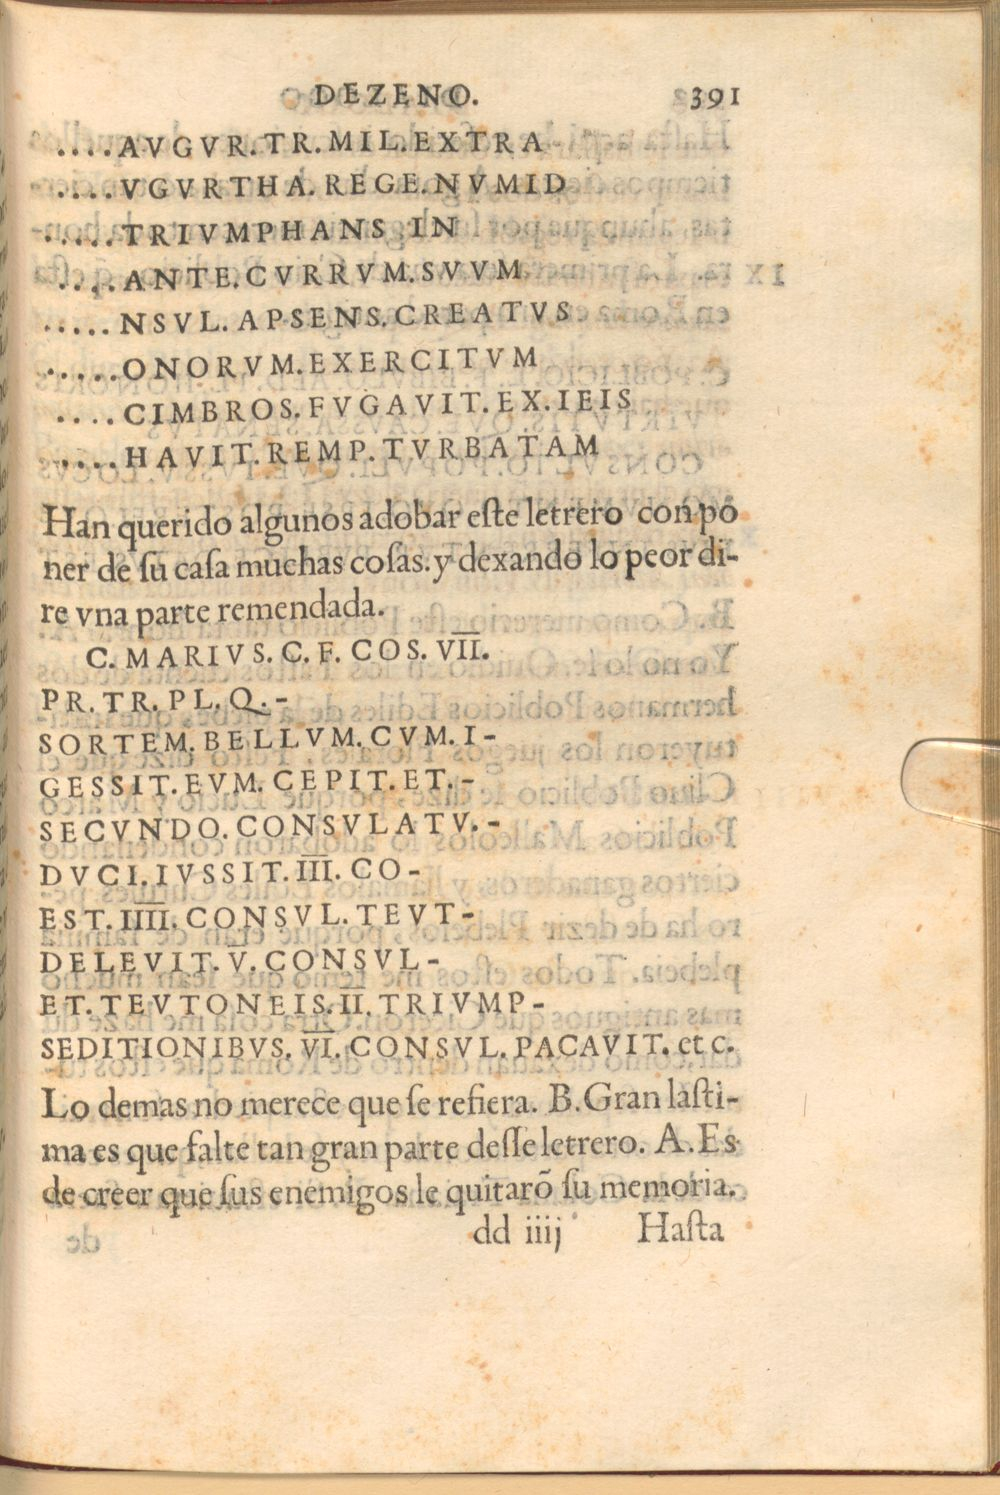 DEZENO. 391
....AVGVR.TR.MIL.EXTRA
....VGVRTHA.REGE.NVMID
.....TRIVMPHANS IN
....ANTE.CVRRVM.SVVM
.....NSVL.APSENS.CREATVS
.....ONORVM.EXERCITVM
....CIMBROS.FVGAVIT.EX.IEIS
....HAVIT.REMP.TVRBATAM
Han querido algunos adobar eſte letrero con po
ner de ſu caſa muchas coſas.y dexando lo peor di-
re vna parte remendada.
C. MARIVS. C. F. COS. VI̅I̅.
PR. TR. PL. Q.-
SORTEM. BELLVM. CVM. I-
GESSIT. EVM. CEPIT. ET.-
SECVNDO. CONSVLATV.-
DVCI. IVSSIT. I̅I̅I̅. CO-
EST. I̅I̅I̅I̅. CONSVL. TEVT-
DELEVIT. V̅. CONSVL-
ET. TEVTONEIS. I̅I̅. TRIVMP-
SEDITIONIBVS. V̅I̅. CONSVL. PACAVIT. et c.
Lo demas no merece que ſe refiera. B. Gran laſti-
ma es que falte tan gran parte deſſe letrero. A. Es
de creer que ſus enemigos le quitarõ ſu memoria.
dd iiij Haſta